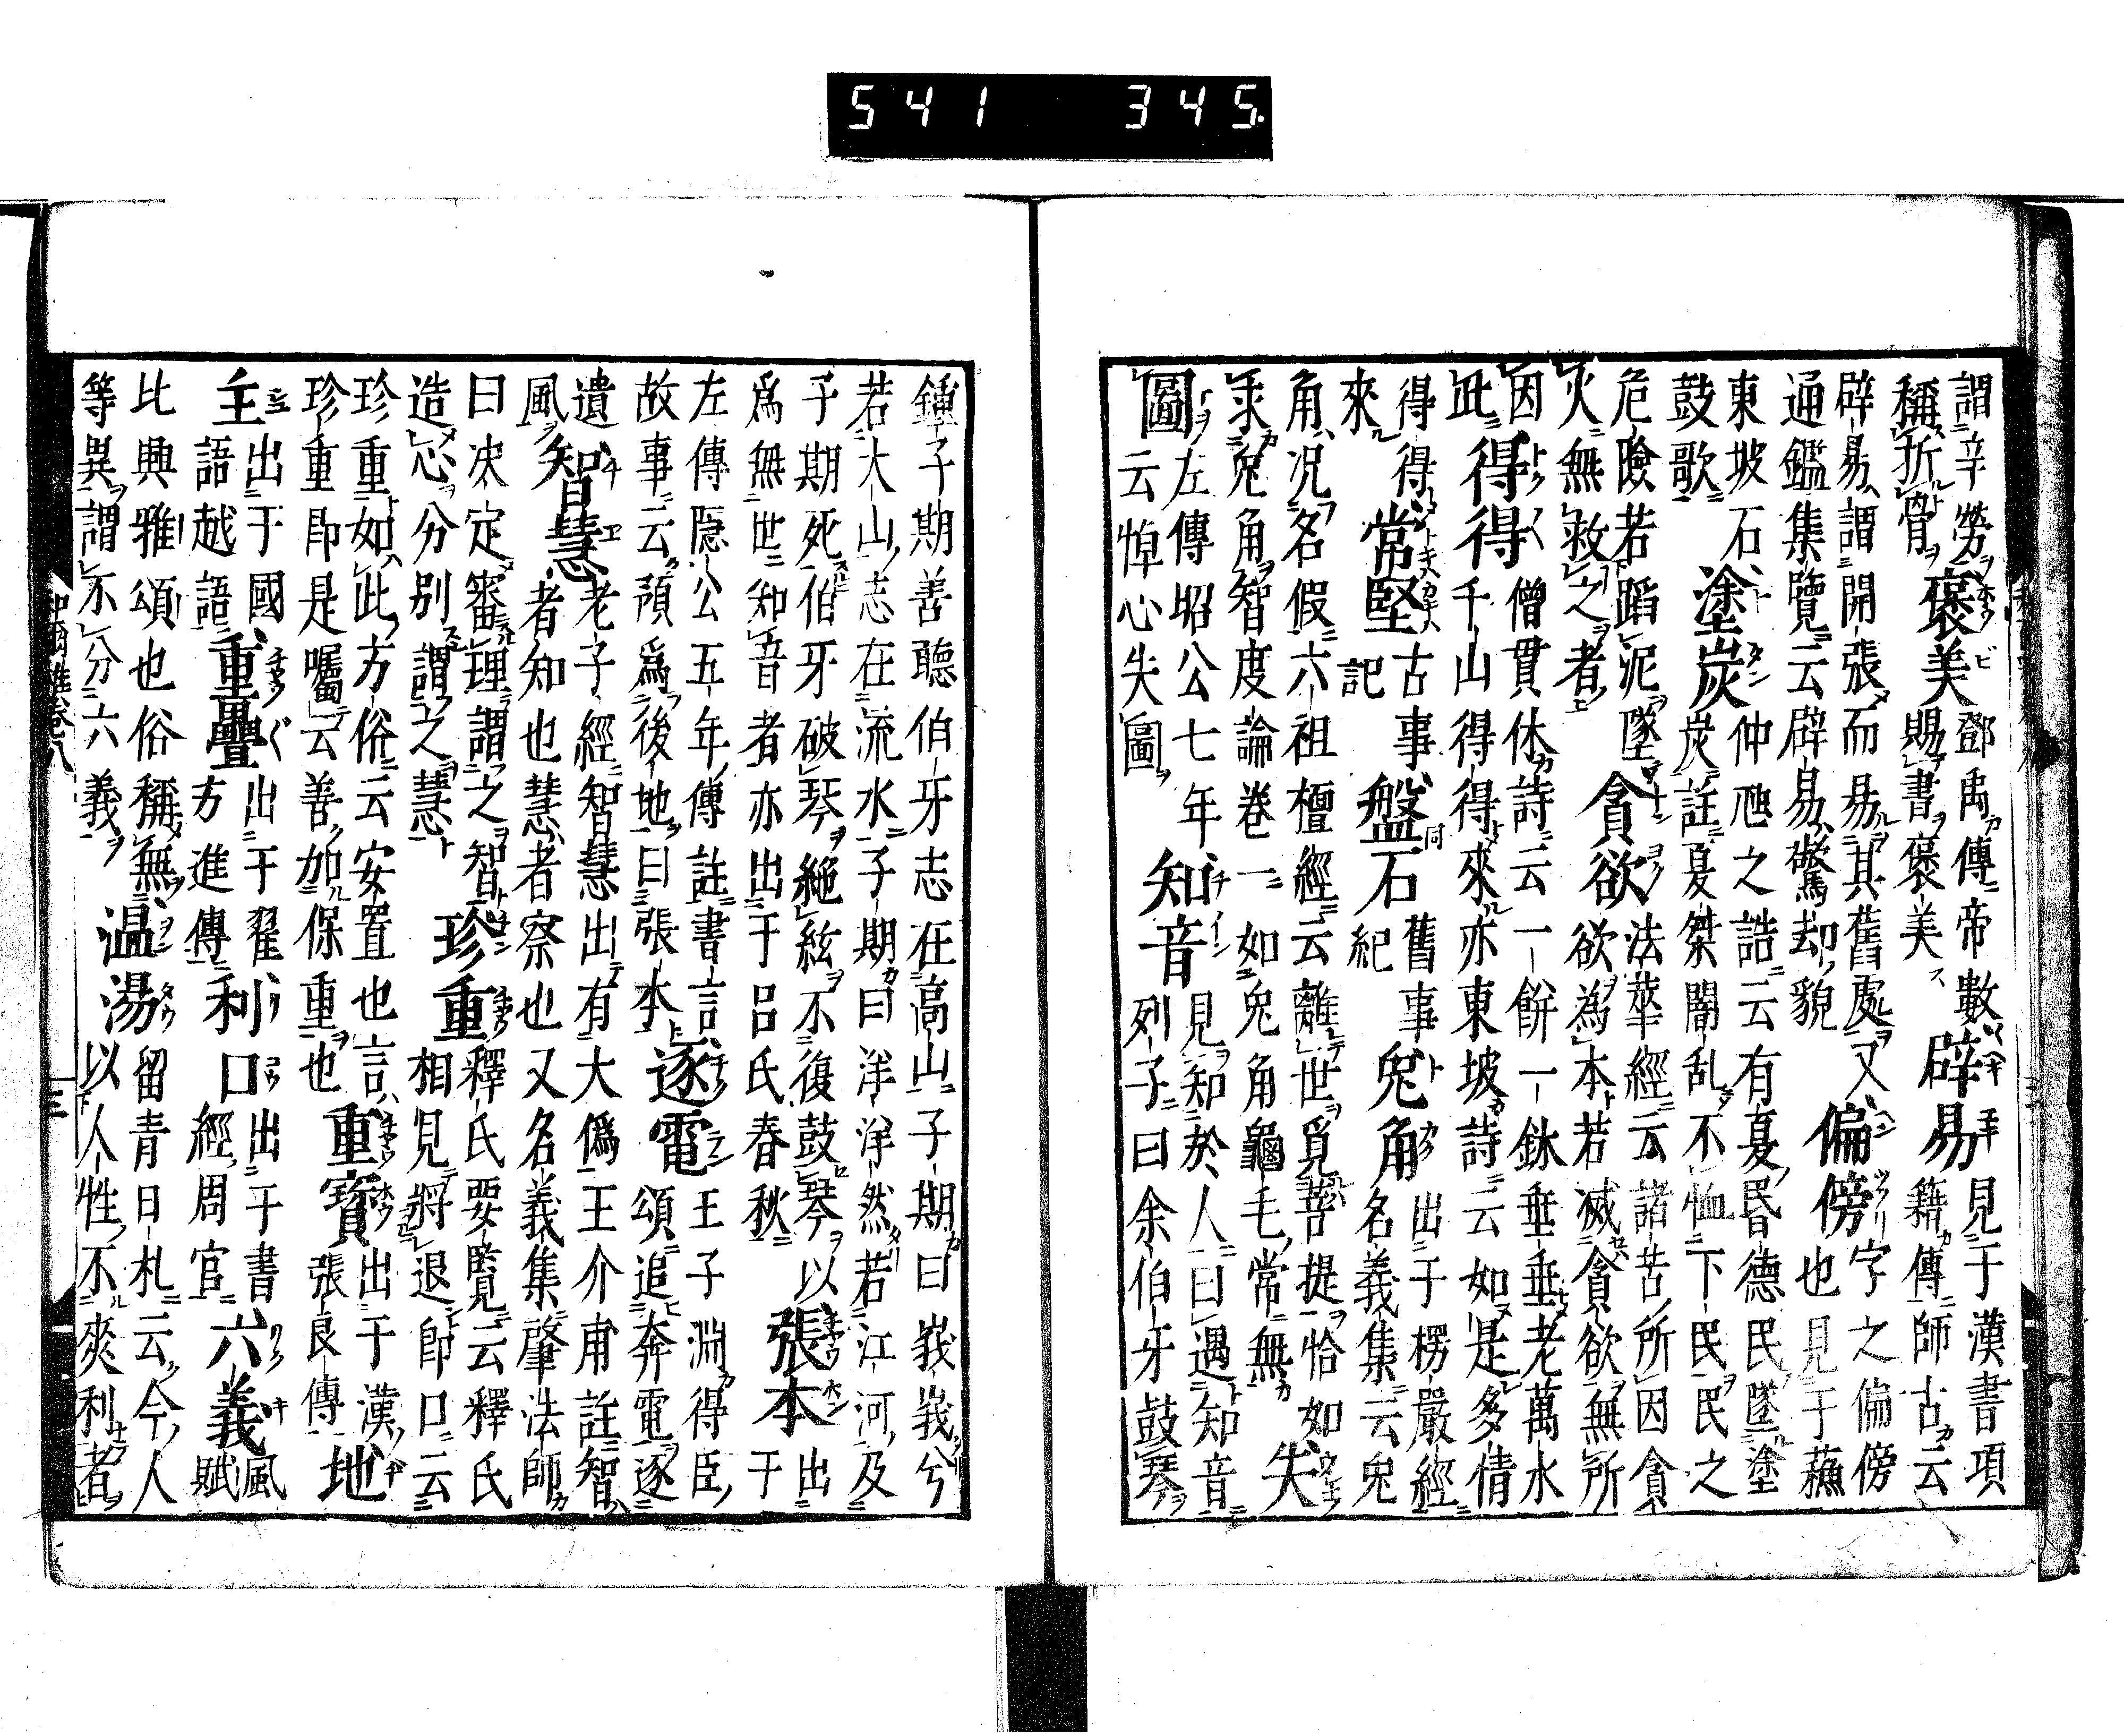 謂辛勞
稱折骨
褒美
鄧禹傳帝數
賜書褒美
辟易
見于漢書項
籍傳師古云
辟易謂開張而易其舊處又
通鑑集覽云辟易驚却貌
偏傍
字之偏傍
也見于蘓
東坡石
鼓歌
塗炭
仲虺之誥云有夏昏德民墜塗
炭註夏桀闇乱不恤下民民之
危險若蹈泥墜
火無救之者
貪欲
法華經云諸苦所因貪
欲為本若滅貪欲無所
因
此
得得
僧貫休詩云一餅一鉢垂垂老萬水
千山得得來亦東坡詩云如是多情
得得
來
常堅
古事
記
盤石
舊事
紀
兎角
出于楞嚴經
名義集云兎
角況名假六祖檀經云離世覓菩提恰如
求兎角智度論卷一如兎角龜毛常無
失
圖
左傳昭公七年
云悼心失圖
知音
見知於人曰遇知音
列子曰余伯牙鼓琴
鍾子期善聽伯牙志在高山子期曰峩峩兮
若大山志在流水子期曰洋洋然若江河及
子期死伯牙破琴絶絃不復鼓琴以
爲無世知音者亦出于呂氏春秋
張本
出
于
左傳隱公五年傳註書言
故事云預爲後地曰張本
逐電
王子淵得臣
頌追奔電逐
遺
風
智慧
老子經智慧出有大僞王介甫註智
者知也慧者察也又名義集肇法師
曰决定審理謂之智
造心分別謂之慧
珍重
釋氏要覽云釋氏
相見將退即口云
珍重如此方俗云安置也言
珍重即是囑云善加保重也
重寳
出于漢
張良傳
地
主
出于國
語越語
重疊
出于翟
方進傳
利口
出于書
經周官
六義
風
賦
比興雅頌也俗稱無
等異謂不分六義
温湯
留青日札云今人
以人性不爽利者
541 345